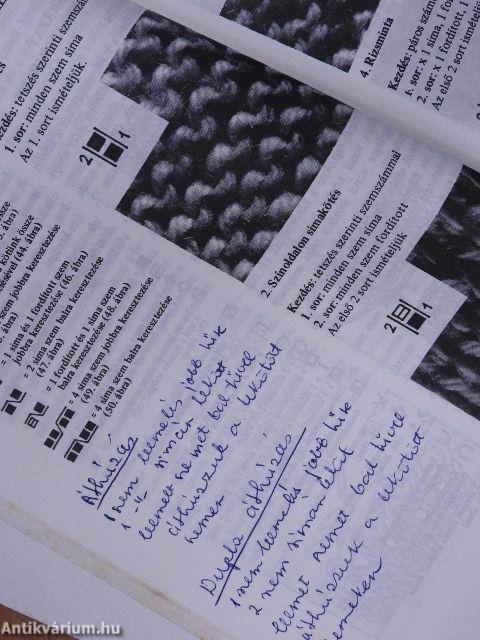 Kezdés: tetszés szerinti
1. sor: minden szem sima
Az 1. sort ismételjük
2
1
2. Színoldalon simakötés
Kezdés: tetszés szerinti szemszámmal
1. sor: minden szem sima
2. sor: minden szem fordított
Az első 2 sort ismételjük
2
1
4. Rizsminta
Kezdés: páros
1. sor: x 1 sima, 1
2. sor: x 1 fordított, 1
Az első 2 sort ismételjük
2
össze
(44. ábra)
szem jobbra keresztezése
= 1 sima és 1 fordított szem
jobbra keresztezése (46. ábra)
= 2 sima szem balra keresztezése
(47. ábra)
= 1 fordított és 1 sima szem
balra keresztezése (48. ábra)
= 4 sima szem jobbra keresztezése
(49. ábra)
= 4 sima szem balra keresztezése
(50. ábra)
Áthúzás
1 szem leemelés jobb tűre
1 -"- simán leköt
leemelt szemet bal tűvel
áthúzzuk a lekötött
szemen
Dupla áthúzás
1 szem leemelés jobb tűre
2 szem simán leköt
leemelt szemet bal tűvel
áthúzzuk a lekötött
szemeken
Antikvárium.hu